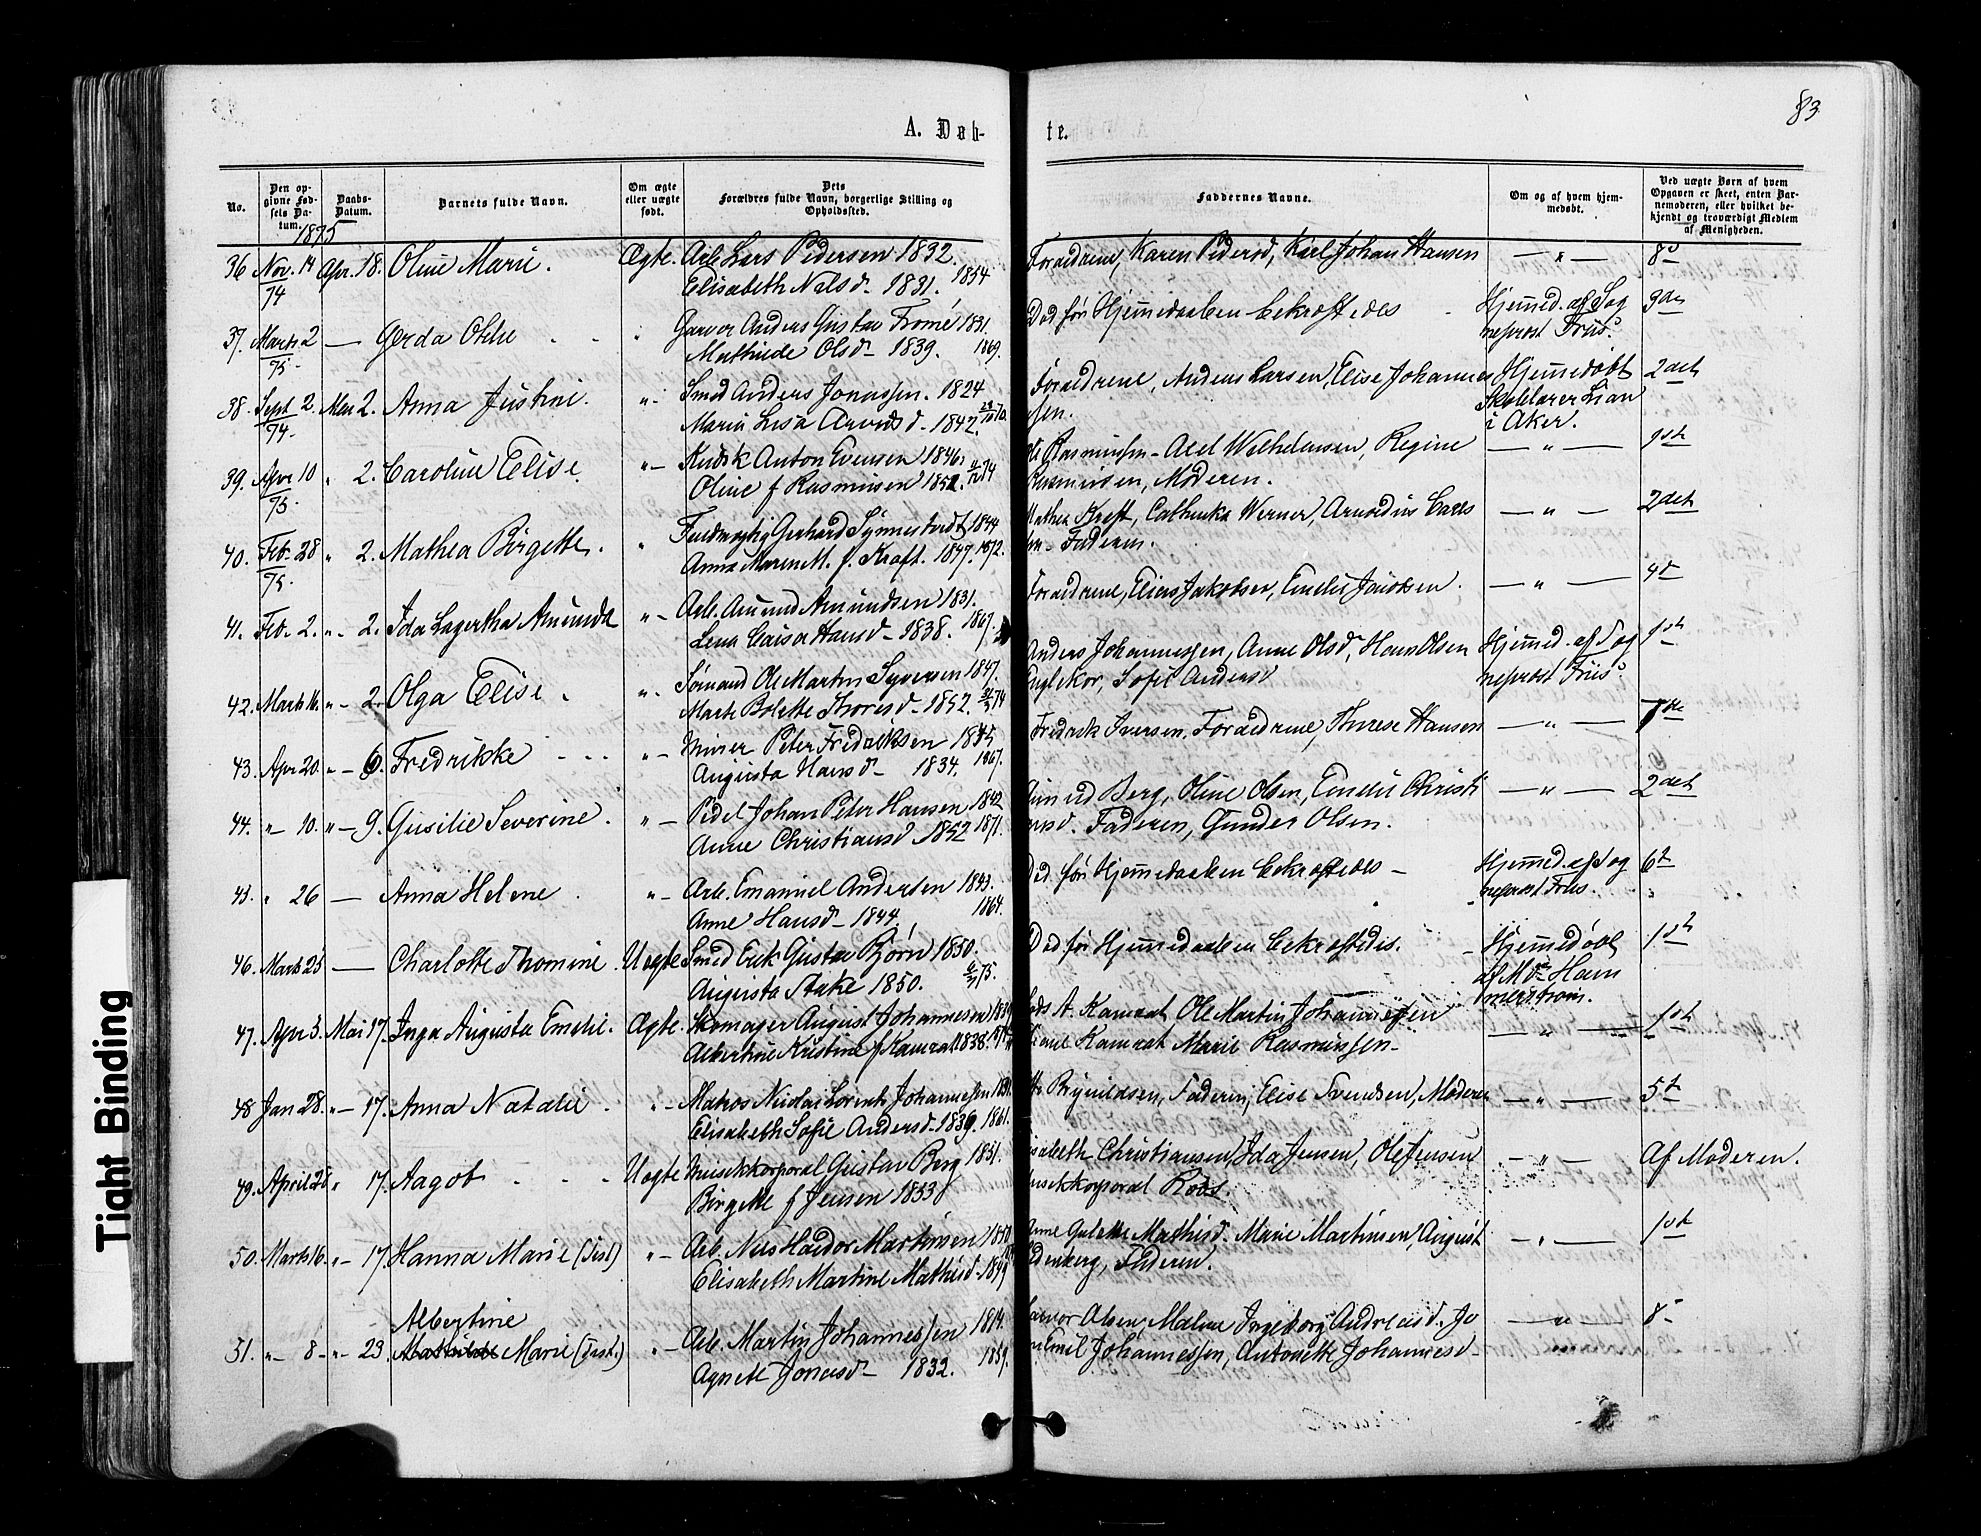 83
A. Døb-
te.
No.
Den opgivne Fødsels Datum.
Daabs-Datum.
Barnets fulde Navn.
Om ægte eller uægte født.
Dets Forældres fulde Navn, borgerlige Stilling og Opholdssted.
Faddernes Navne.
Om og af hvem hjemmedøbt.
Ved uægte Børn af hvem Opgaven er skeet, enten Barnemoderen, eller hvilket bekjendt og troværdigt Medlem af Menigheden.
1875
36 Nov. 14/74 Apr. 18. Oline Marie. Ægte. Arb. Lars Pedersen 1832. Forældrene, Karen Pedersd, Karl Johan Hansen — „ — 8d
Elisabeth Nilsd - 1831. 1854
37. Marts 2/75 — Gerda Othe „ Garver Anders Gustav Fromé 1831. Død før Hjemmedaaben bekræftedes Hjemmed. af Sog 3de
Mathilde Olsd - 1839. 1869. neprost Friis.
38. Sept 2./74 Mai 2. Anna Justine. „ Smed Anders Jonassen. 1824 Forældrene, Anders Larsen, Elise Johannes Hjemmedøbt 2det
Maria Lisa Arvidsd - 1842. sen. Skolelærer Lian
i Aker.
39. Apr 10/75 „ 2. Caroline Elise. „ - Kudsk Anton Evensen 1846. Rasmussen - Axel Wilhelmsen, Regine — „ — 1ste
Oline f Rasmussen 1852. Rasmussen, Moderen.
40. Feb. 28/75 „ 2. Mathea Birgette. „ Gerhard Synnestvedt 1844 Mathea Kraft, Cathinka Werner, Arnoldus Carls — „ — 2det
Anna Maren M. f. Kraft. 1847. 1872. sen - Faderen.
41. Feb. 2. „ - 2. Ida Lagertha Amunda „ - Arb. Amund Amundsen 1831. Forældrene, Elias Jakobsen, Emelie Jacobsen. — „ — 4d
Lena Caisa Hansd - 1838. 1867.
42. Marts 16. „ - 2. Olga Elise. „ Sømand Ole Martin Syversen 1847. Anders Johannessen, Anne Olsd, Hans Olsen Hjemmed. af Sog 1st
Marte Bolette Thoresd - 1852. Sofie Andersd neprost Friis.
43. Apr 20. „ - 6. Fredrikke „ - Miner Peter Fredriksen 1845 Fredrik Iversen, Forældrene, Therese Hansen — „ — 7de
Augusta Hansd - 1834. 1867.
44. „ - 10. „ - 9. Gusilie Severine. „ - Pedel Johan Peter Hansen 1842 Berg, Oline Olsen, Emelie Christi — „ — 2det
Anne Christiansd 1852 1871. ansd. Faderen, Gunder Olsen.
45. „ 26 — Anna Helene „ - Arb. Emanuel Andersen 1843. Død før Hjemmedaaben bekræftedes - Hjemmed. af Sog 6t
Anne Hansd - 1844. 1864. neprost Friis. „
46. Marts 25 — Charlotte Thomine. Uegte Smed Erik Gustav Bjørn 1850. Død før Hjemmedaaben bekræftedes. Hjemmedøbt 1st
Augusta Stake 1850. af Md Ham
merstrøm.
47. Apr 3. Mai 17. Inga Augusta Emelie. Ægte. Skomager August Johannesen A. Kamrat Ole Martin Johannessen — „ — 1st
Albertine Kristine f Kamrat 1838. Kamrat Marie Rasmussen -
48 Jan 28. „ - 17. Anna Natalie. „ - Matros Nicolai Lorents Johannessen Brynildsen, Faderen, Elise Svendsen, Moderen — „ — 5t
Elisabeth Sofie Andersd - 1839. 1861.
49. April 28 „ 17. Aagot Uegte Musikkorporal Gustav Berg 1851. Elisabeth Christiansen, Ida Jensen, Ole Jensen — „ — Af Moderen.
Birgette f Jensen 1853 Musikkorporal Roos.
50. Marts 16. „ - 17. Hanna Marie (Tvil.) „ - Arb. Nils Haldor Martinsen 1850 Anne Gulette Mathisd. Marie Martinsen, August — „ — 1st
Elisabeth Martine Mathisd - 1849 Faderen.
51. „ - 8 - „ - 23. Albertine „ - Arb. Martin Johannessen 1814. Halvor Olsen, Malene Ingeborg Andreasd. Jo — „ — 8
Mathilde Marie (Tvil.) Agnete Jonasd - 1832. 1859. Emil Johannessen, Antonette Johannesd -
Tight Binding